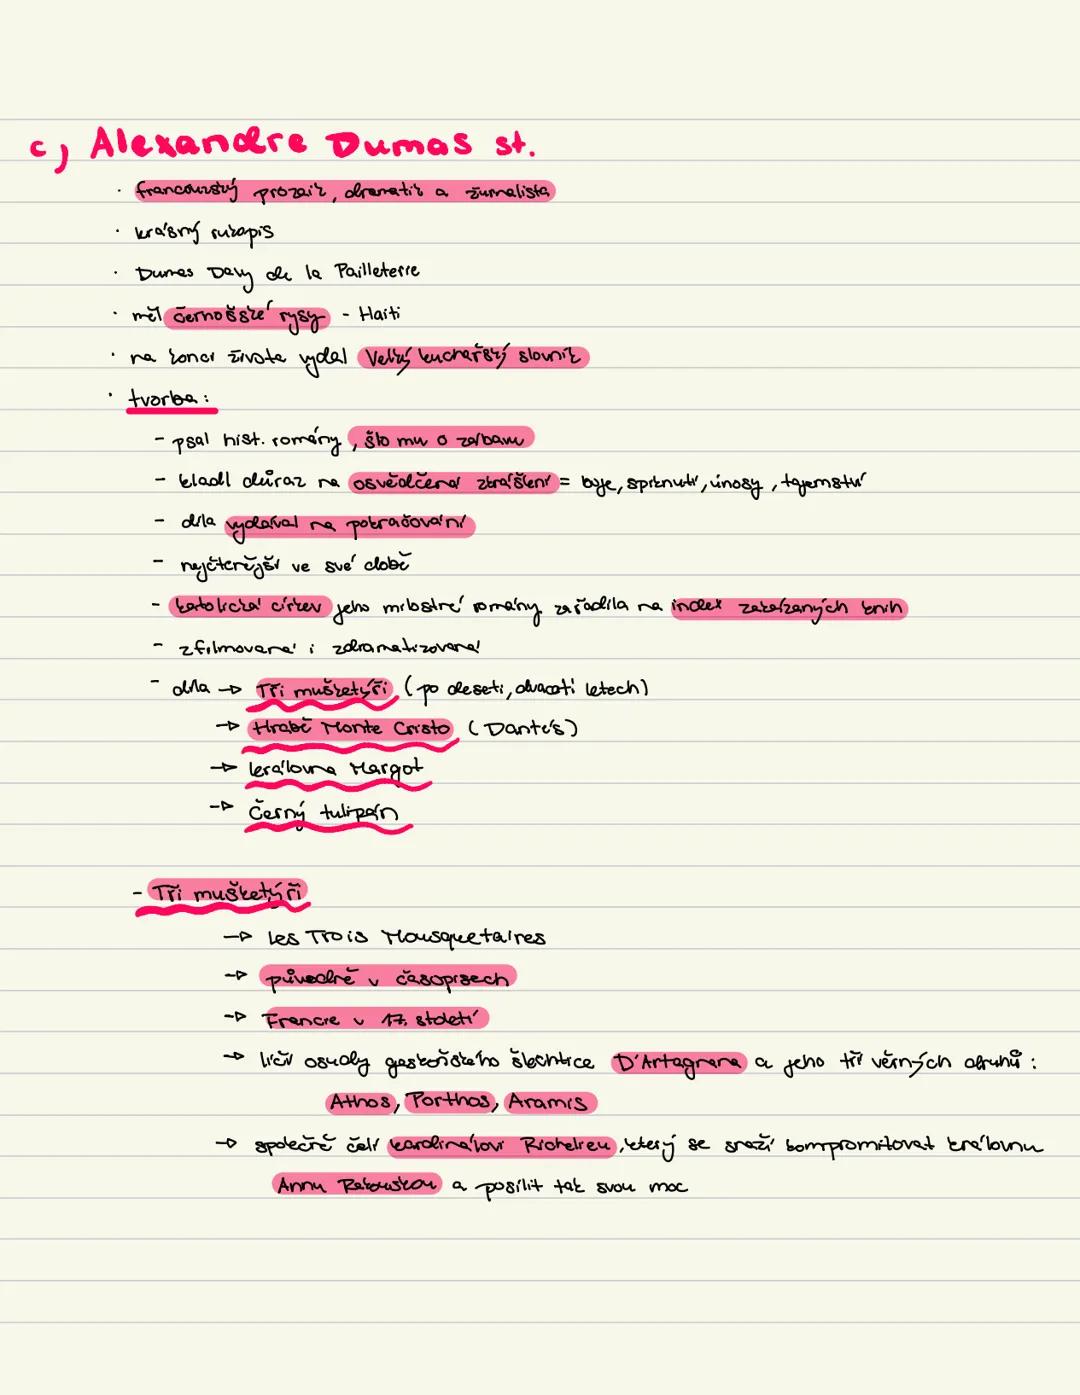 c) Alexandre Dumas st.
· francouzský prozaik, dramatik a žurnalista
· krásný rukopis
· Dumas Davy de la Pailleterre
· měl černošské rysy - Haiti
· na konci života vydal Velký kuchařský slovník
· tvorba:
- psal hist. romány, šlo mu o zábavu
- kladl důraz na osvědčená zkrášlení = boje, spiknutí, únosy, tajemství
- díla vydával na pokračování
- nejčtenější ve své době
- katolická církev jeho milostné romány zařadila na index zakázaných knih
- zfilmovaná i zdramatizovaná
- díla → Tři mušketýři (po deseti, dvaceti letech)
→ Hrabě Monte Cristo (Dantés)
→ královna Margot
→ Černý tulipán
- Tři mušketýři
→ Les Trois Mousquetaires
→ původně v časopisech
→ Francie v 17. století
→ líčí osudy gaskoňského šlechtice D'Artagnana a jeho tří věrných druhů:
Athos, Porthos, Aramis
→ společně čelí kardinálovi Richelieu, který se snaží kompromitovat královnu
Annu Rakouskou a posílit tak svou moc